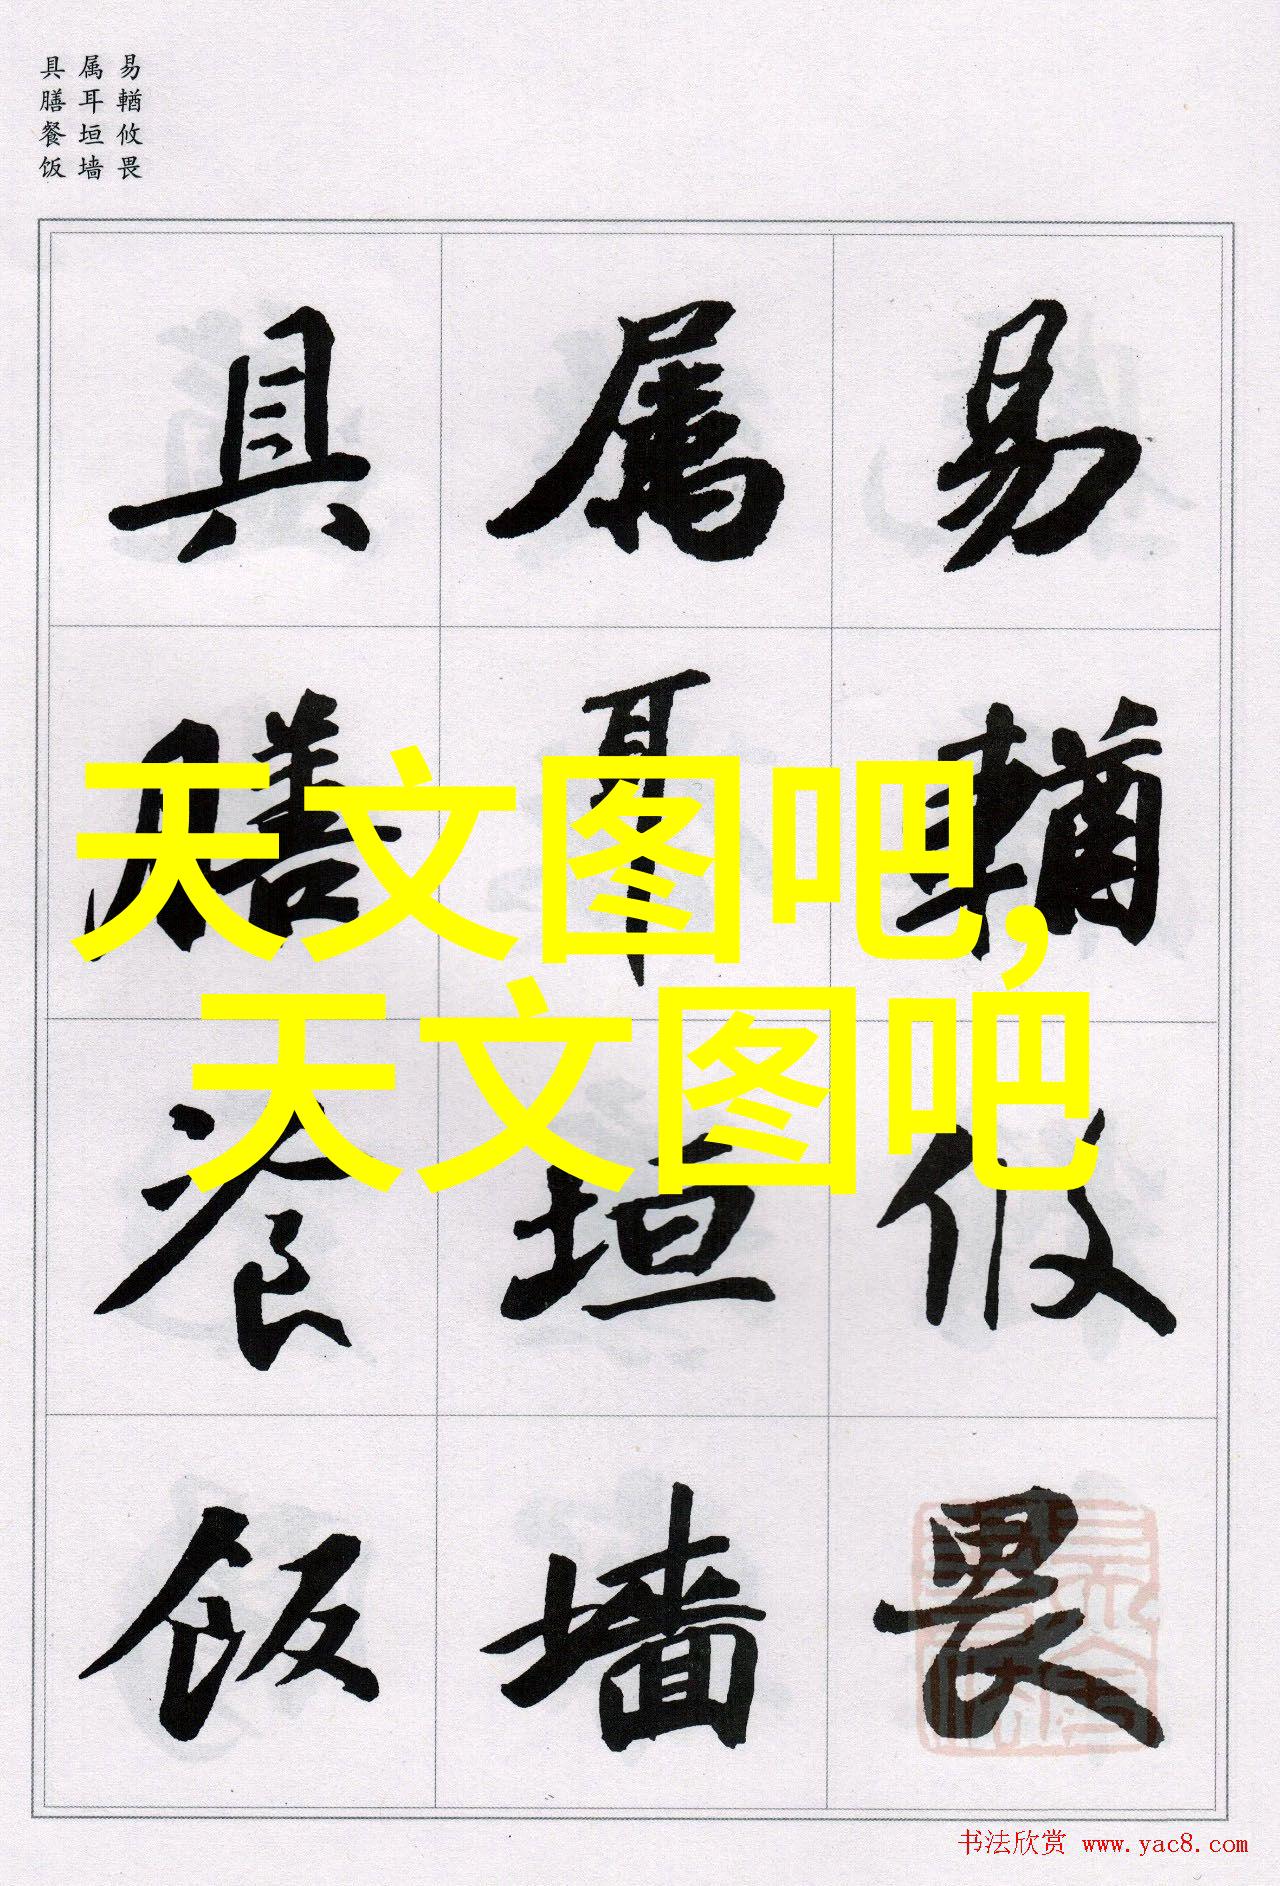 易輶攸畏
属耳垣墙
具膳餐饭
易輶攸畏
属耳垣墙
具膳餐饭
天文图吧,
天文图吧
书法欣赏 www.yac8.com